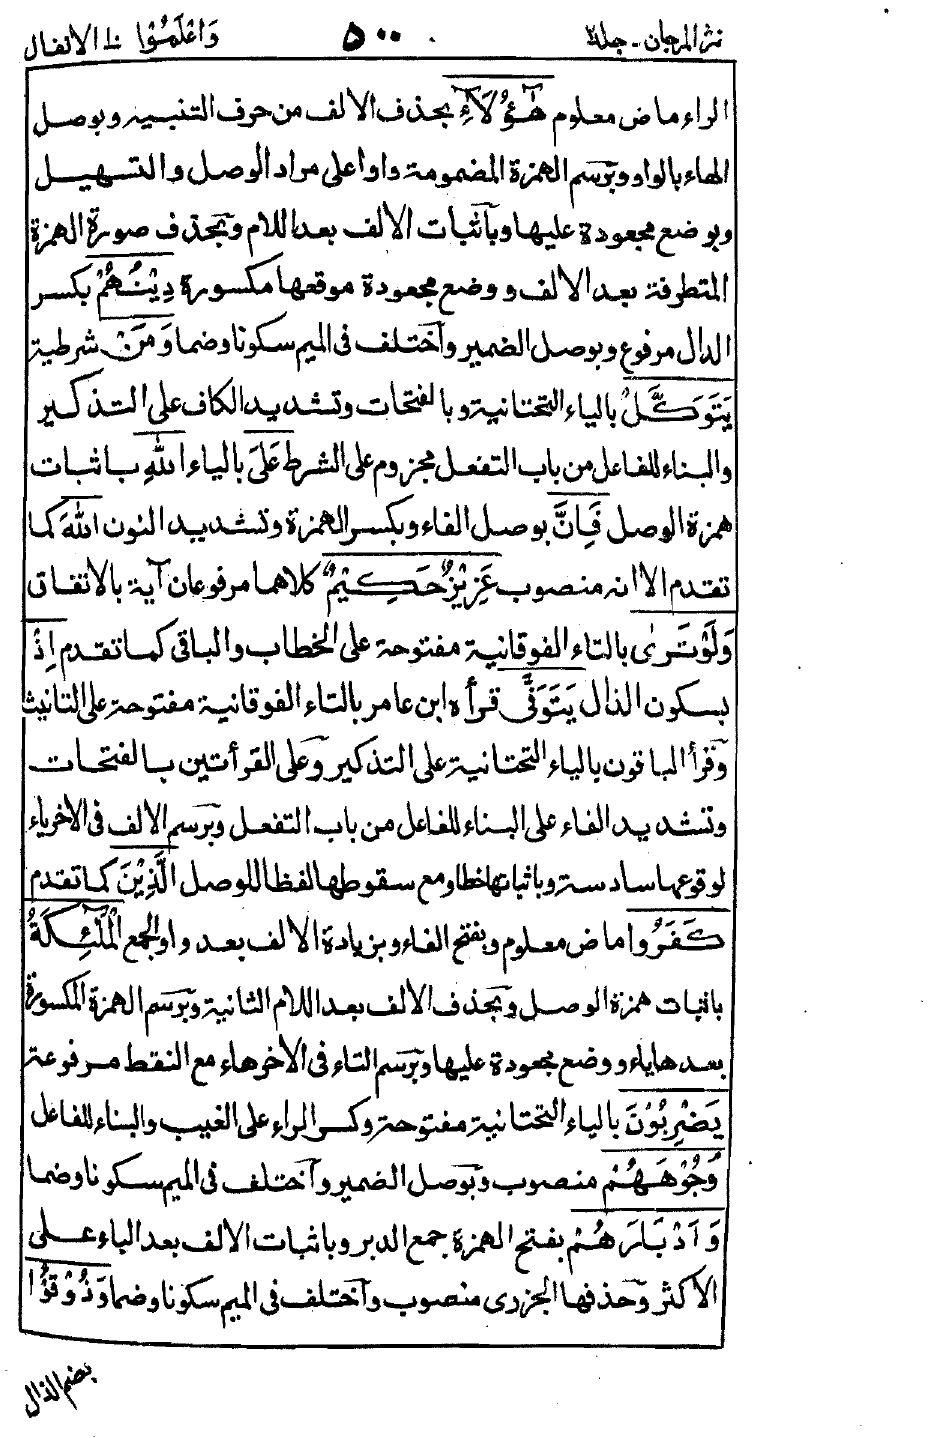 نثر المرجان - جلد ٢ ٥٠٠ وَاعْلَمُوْا ١٠ الانفال
الراء ماض معلوم هٰٓؤُلَآءِ بحذف الالف من حرف التنبيه وبوصل
الهاء بالواو وبرسم الهمزة المضمومة واوا على مراد الوصل والتسهيل
وبوضع مجعودة عليها وبآثبات الالف بعد اللام وبحذف صورة الهمزة
المتطرفة بعد الالف ووضع مجعودة موقعها مكسورة دِيْنُهُمْ بكسر
الدال مرفوع وبوصل الضمير وآختلف فى الميم سكونا وضما وَمَنْ شرطية
يَتَوَكَّلْ بالياء التحتانية وبالفتحات وتشديد الكاف على التذكير
والبناء للفاعل من باب التفعل مجزوم على الشرط عَلَى بالياء اللّٰهِ باثبات
همزة الوصل فَاِنَّ بوصل الفاء وبكسر الهمزة وتشديد النون اللّٰهَ كما
تقدم الا انه منصوب عَزِيْزٌ حَكِيْمٌ كلاهما مرفوعان آية بالاتفاق
وَلَوْ تَرٰى بالتاء الفوقانية مفتوحة على الخطاب والباقى كما تقدم اِذْ
بسكون الذال يَتَوَفَّى قرأه ابن عامر بالتاء الفوقانية مفتوحة على التانيث
وقرأ الباقون بالياء التحتانية على التذكير وعلى القرأتين بالفتحات
وتشديد الفاء على البناء للفاعل من باب التفعل وبرسم الالف فى الاخر ياء
لوقوعها سادسة وباثباتها خطا ومع سقوطها لفظا للوصل الَّذِيْنَ كما تقدم
كَفَرُوا ماض معلوم وبفتح الفاء وبزيادة الالف بعد واو الجمع الْمَلٰٓئِكَةُ
باثبات همزة الوصل وبحذف الالف بعد اللام الثانية وبرسم الهمزة المكسورة
بعدها ياء ووضع مجعودة عليها وبرسم التاء فى الآخر هاء مع النقط مرفوعة
يَضْرِبُوْنَ بالياء التحتانية مفتوحة وكسر الراء على الغيب والبناء للفاعل
وُجُوْهَهُمْ منصوب وبوصل الضمير وآختلف فى الميم سكونا وضما
وَاَدْبَارَهُمْ بفتح الهمزة جمع الدبر وباثبات الالف بعد الباء على
الاكثر وحذفها الجزرى منصوب وآختلف فى الميم سكونا وضما وَذُوْقُوْا
بضم الذال